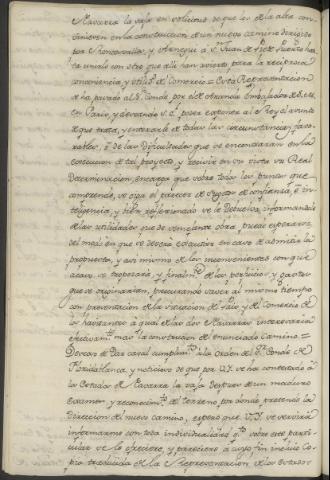 Navarra la vaja en solicitud de que se de la alta con-
viniesen en la construccion de un nuevo camino dirigido
por Roncesvalles, y Arnegui á Sn. Juan de Pie de Puerto has
ta unirlo con otro que alli han avierto para la reciproca
conveniencia y utilid. de Comercio = Esta Representacion
se ha pasado al Sr. Conde por el de Aranda Embajador de S. M.
en Paris, y deseando S. E. poder exponer al Rey el asunto
de que trata, y enterarle de todas las circunstancias favo-
rables, ó de las Dificultades que se encontraran en la
execucion de tal proyecto, y recivir en su vista su Real
Determinacion, encarga que sobre todos los puntos que
comprende, se oiga el parecer de Sugetos de confianza, é in-
teligencia, y bien reflexionado se le Debuelva, informandole
de las utilidades que de semejante obra, puede esperarse
del modo en que se deveria executar en caso de admitir la
propuesta, y asi mismo de los inconvenientes con que
acaso se tropezaria, y finalmte. de los perjuicios, y gastos
que se originarian, procurando hacer al mismo tiempo
con presentacion de la situacion del Pais, y del Comercio de
los havitantes á qual de las dos Navarras interesaria
efectivamte. mas la construccion del enunciado Camino =
Deseoso de dar caval cumplimto. á la Orden del Sr. Conde de
Floridablanca, y noticioso de que por V. S. se ha contextado á
los Estados de Navarra la vaja despues de un maduro
examen, y reconocimto. del terreno, por donde pretende la
direccion del nuevo camino, espero que V. S. se servirá
informarme con toda individualidad qto. sobre este parti-
cular se le ofreciere, y pareciere, á cuyo fin incluio Co-
pia traducida de la Representacion de los Estados